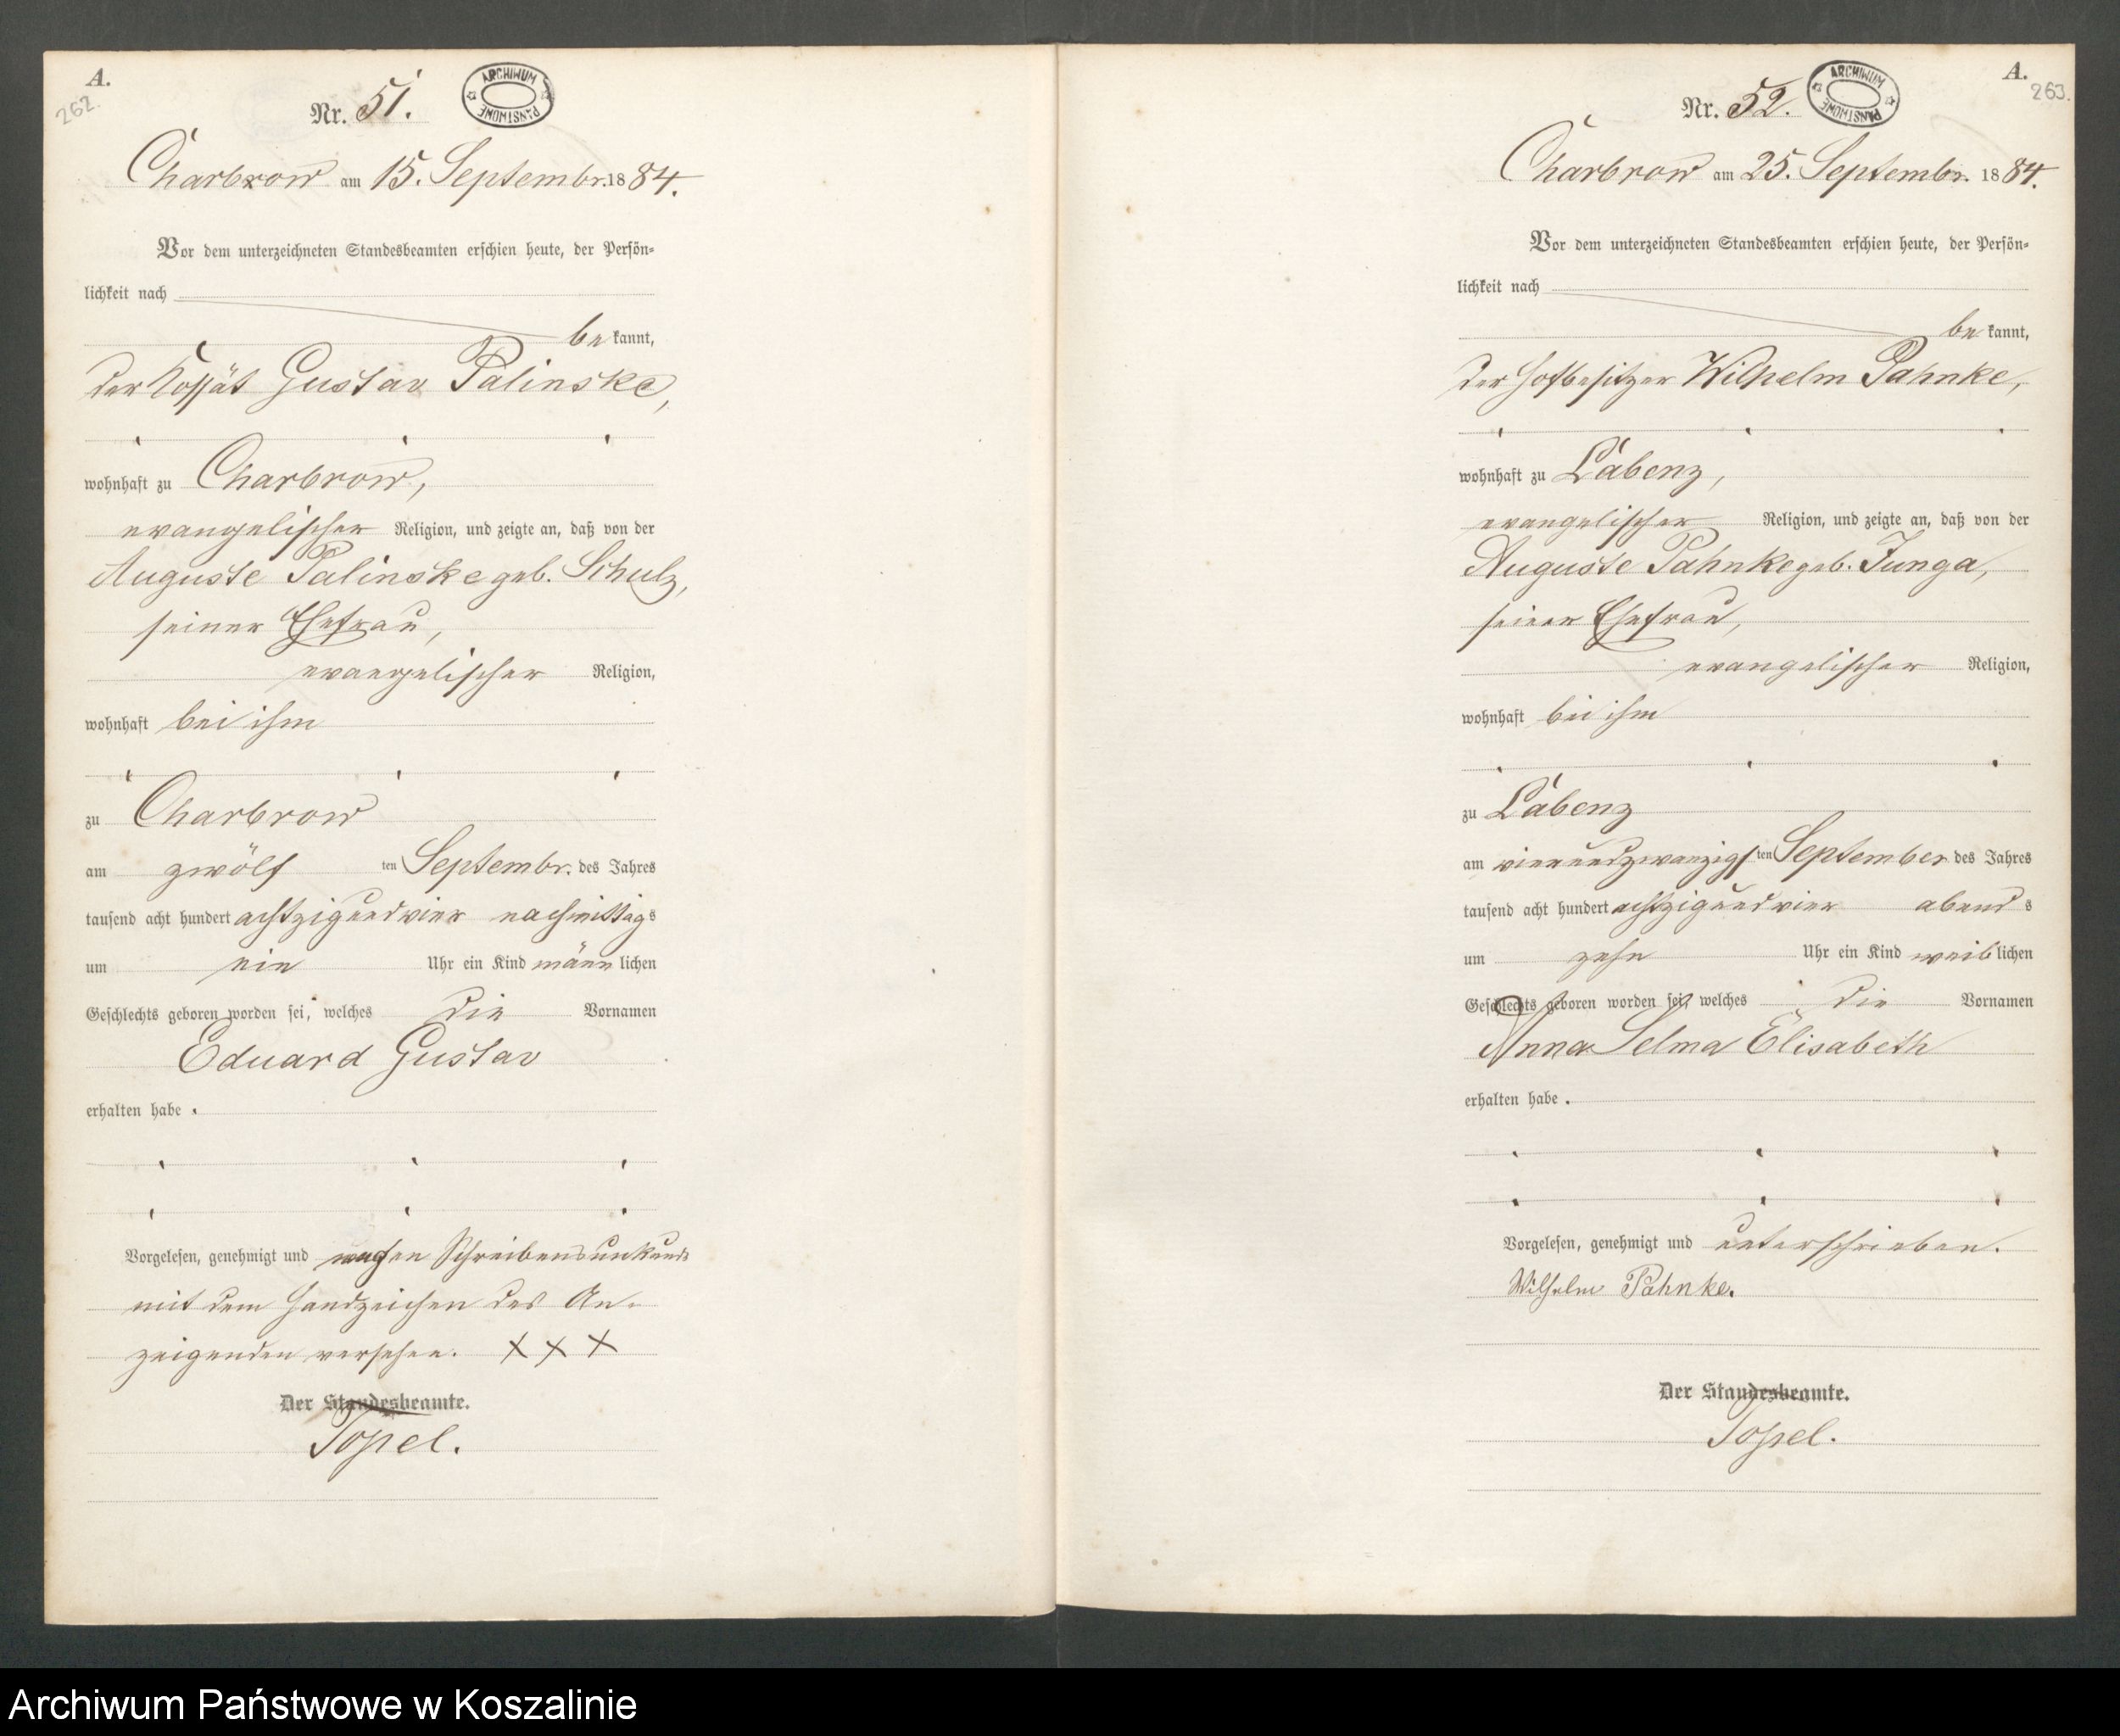 A.
262.
Nr. 51.
ARCHIWUM PAŃSTWOWE
Charbrow am 15. Septembr. 1884.
Vor dem unterzeichneten Standesbeamten erschien heute, der Persön-
lichkeit nach
be kannt,
der Kossät Gustav Palinske,
wohnhaft zu Charbrow,
evangelischer Religion, und zeigte an, daß von der
Auguste Palinske geb. Schulz,
seiner Ehefrau,
evangelischer Religion,
wohnhaft bei ihm
zu Charbrow
am zwölf ten Septembr. des Jahres
tausend acht hundert achtzigundvier nachmittags
um ein Uhr ein Kind männlichen
Geschlechts geboren worden sei, welches die Vornamen
Eduard Gustav
erhalten habe.
Vorgelesen, genehmigt und wegen Schreibensunkunde
mit dem Handzeichen des An-
zeigenden versehen. XXX
Der Standesbeamte.
Topel.
A.
263.
Nr. 52.
ARCHIWUM PAŃSTWOWE
Charbrow am 25. Septembr. 1884.
Vor dem unterzeichneten Standesbeamten erschien heute, der Persön-
lichkeit nach
be kannt,
der Hofbesitzer Wilhelm Pahnke,
wohnhaft zu Labenz,
evangelischer Religion, und zeigte an, daß von der
Auguste Pahnke geb. Junga,
seiner Ehefrau,
evangelischer Religion,
wohnhaft bei ihm
zu Labenz
am vierundzwanzigsten September des Jahres
tausend acht hundert achtzigundvier abends
um zehn Uhr ein Kind weiblichen
Geschlechts geboren worden sei, welches die Vornamen
Anna Selma Elisabeth
erhalten habe.
Vorgelesen, genehmigt und unterschrieben.
Wilhelm Pahnke.
Der Standesbeamte.
Topel.
Archiwum Państwowe w Koszalinie